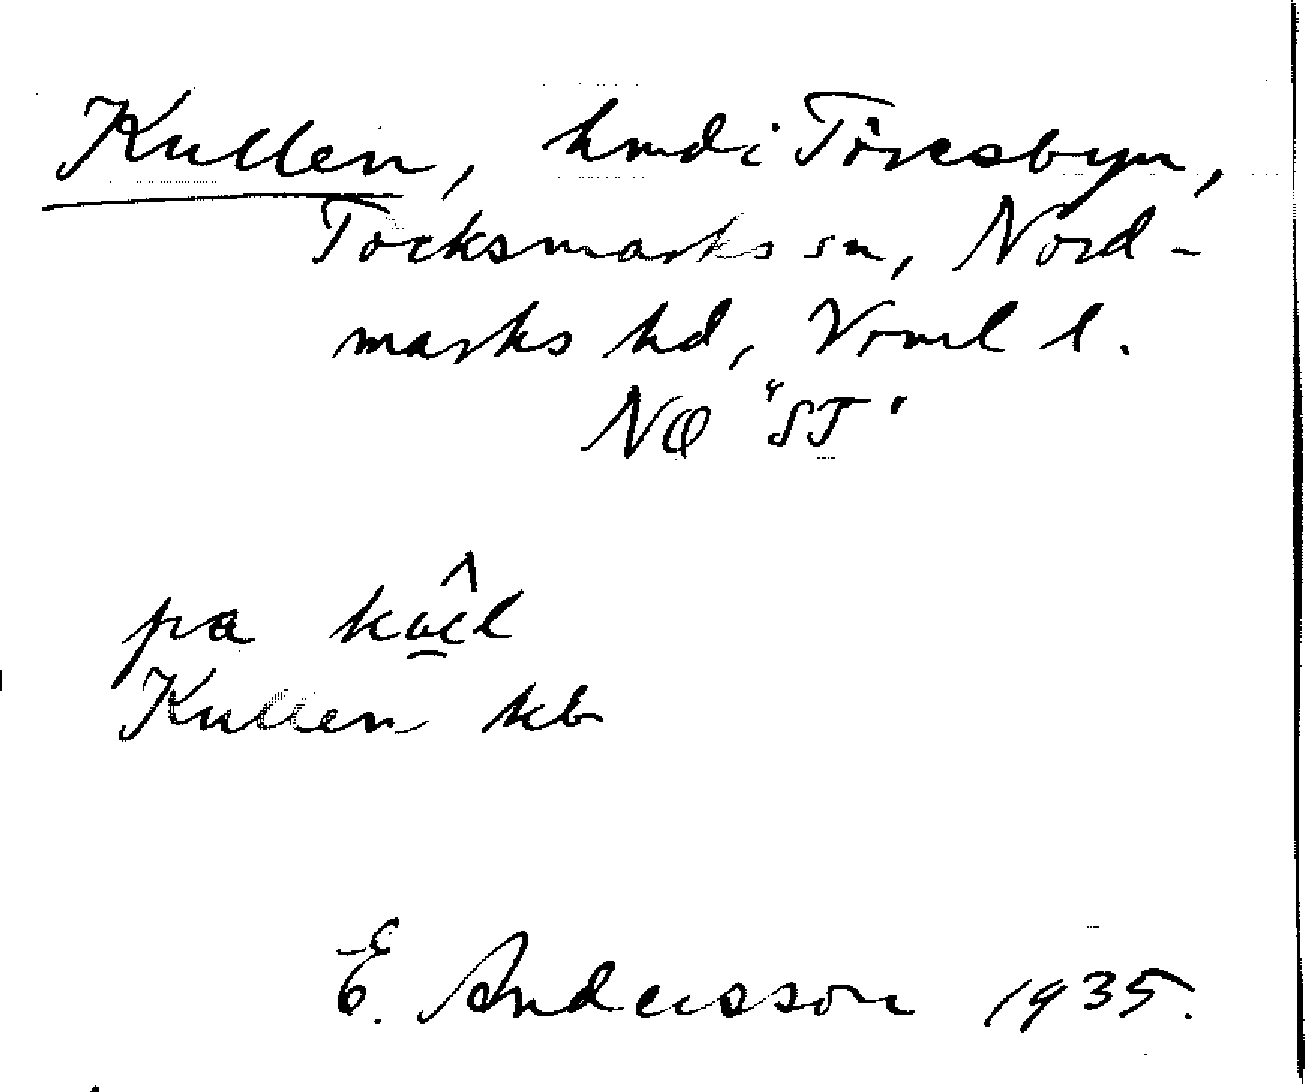 Kullen, hmd i Töresbyn,
Tocksmarks sn, Nord-
marks hd, Vrml l.
NO "ST"
pa
Kullen kb
E. Andersson 1935.